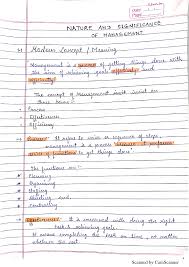 NATURE AND SIGNIFICANCE
OF MANAGEMENT
Modern Concept / Meaning
Management is a process of getting things done with
the aim of achieving goals effectively and
efficiently
The concept of Management
Process
Effectiveness
Efficiency
Process: It refers to series or sequence of steps.
management is a process because it performs
functions to get things done
The functions are :-
Planning
Organising
Staffing
Directing and
Controlling
Effectiveness: It is concerned with doing the right
task & achieving goals.
It means completing the task on time, no matter
whatever the cost.
Scanned by CamScanner